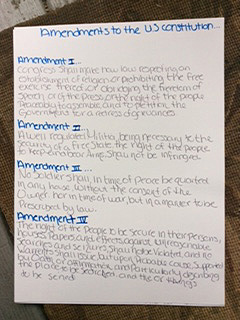 Amendments to the US constitution...
Amendment I...
Congress shall make now law respecting an
establishment of religion or prohibiting the free
exercise thereof or abridging the freedom of
speech, or of the press or the right of the people
Peaceably to assemble, and to petition, the
Government for a redress of grievances
Amendment II...
A well regulated Militia, being necessary to the
security of a Free State, the right of the people
to keep and bear Arms, shall not be infringed
Amendment III...
No Soldier shall, in time of Peace be quartered
in any house, without the consent of the
Owner, nor in time of war, but in a manner to be
Prescribed by law.
Amendment IIII
The right of the People to be secure in their Persons,
houses, Papers, and effects, against unreasonable
searches and seizures, shall not be violated, and no
warrants shall issue, but upon Probable cause, supported
by Oath or affirmation, and Particularly describing
the place to be searched, and the or things
to be seized